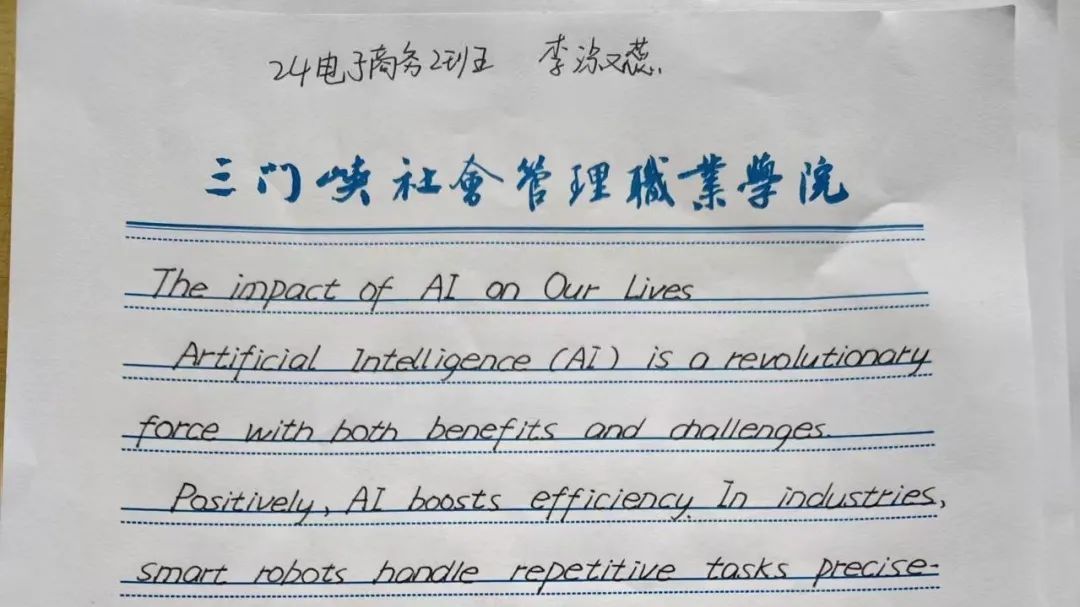 24电子商务2班 李 蕊
三门峡社會管理職業學院
The impact of AI on Our Lives
Artificial Intelligence (AI) is a revolutionary
force with both benefits and challenges.
Positively, AI boosts efficiency. In industries,
smart robots handle repetitive tasks precise-